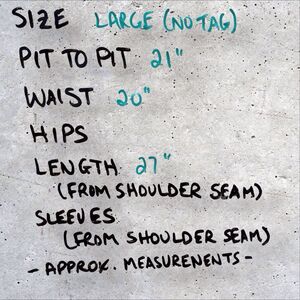 SIZE LARGE (NO TAG)
PIT TO PIT 21"
WAIST 20"
HIPS
LENGTH 27"
(FROM SHOULDER SEAM)
SLEEVES
(FROM SHOULDER SEAM)
- APPROX. MEASUREMENTS -